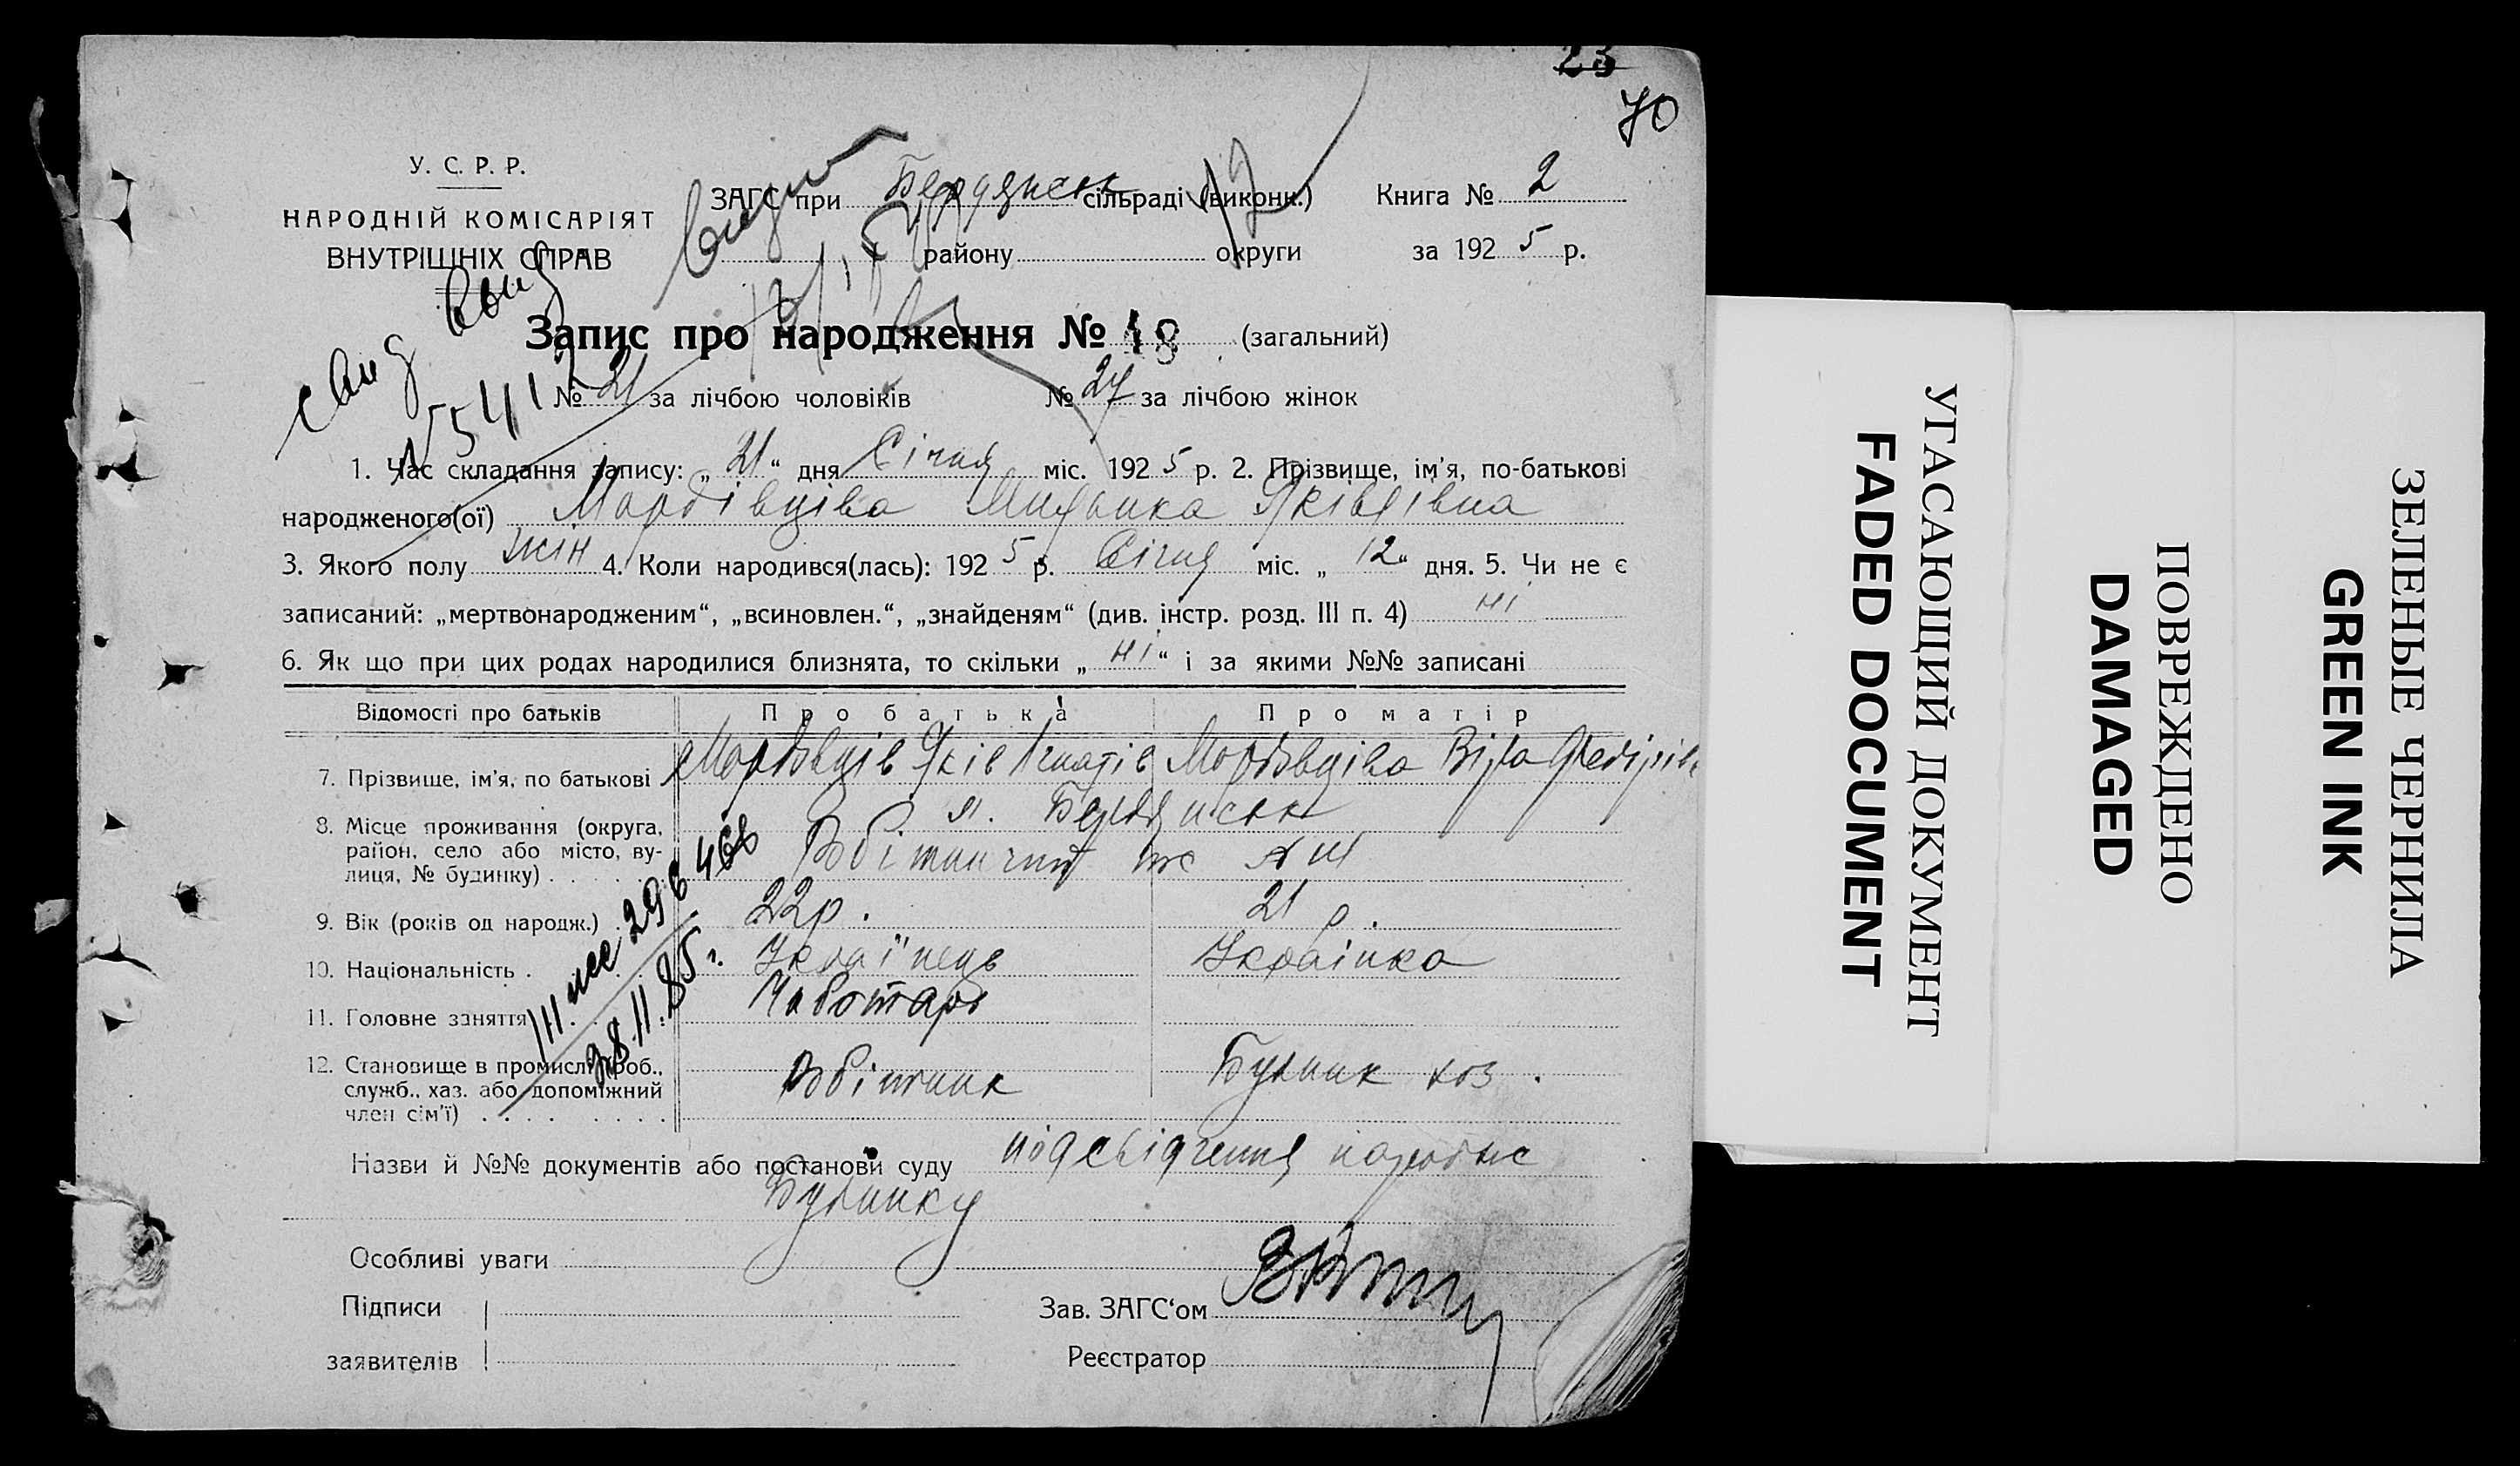 23
70
У. С. Р. Р.
НАРОДНІЙ КОМІСАРІЯТ
ВНУТРІШНІХ СПРАВ
ЗАГС при Бердянськ сільраді (виконк.) Книга № 2
району округи за 1925 р.
17
Запис про народження № 48 (загальний)
№ 21 за лічбою чоловіків № 27 за лічбою жінок
1. Час складання запису: „21“ дня Січня міс. 1925 р. 2. Прізвище, ім'я, по-батькові
народженого(ої) Мордівціва Яківлівна
3. Якого полу жін 4. Коли народився(лась): 1925 р. Січня міс. „12“ дня. 5. Чи не є
записаний: „мертвонародженим“, „всиновлен.“, „знайденям“ (див. інстр. розд. III п. 4) ні
6. Як що при цих родах народилися близнята, то скільки „ні“ і за якими №№ записані
Відомості про батьків Про батька Про матір
7. Прізвище, ім'я, по батькові Мордовців Яків Ігнатів Мордовціва Віра Федірівн
8. Місце проживання (округа, район, село або місто, вулиця, № будинку) м. Бердянськ
9. Вік (років од народж.) 22р. 21 р.
10. Національність Україїнець Українка
11. Головне заняття Чоботарь
12. Становище в промислі (роб., служб., хаз. або допоміжний член сім'ї) Робітник хоз.
III 296468
28.11.85 г.
Назви й №№ документів або постанови суду
Будинку
Особливі уваги
Підписи
заявителів
Зав. ЗАГС'ом
Реєстратор
УГАСАЮЩИЙ ДОКУМЕНТ
FADED DOCUMENT
ПОВРЕЖДЕНО
DAMAGED
ЗЕЛЕНЫЕ ЧЕРНИЛА
GREEN INK